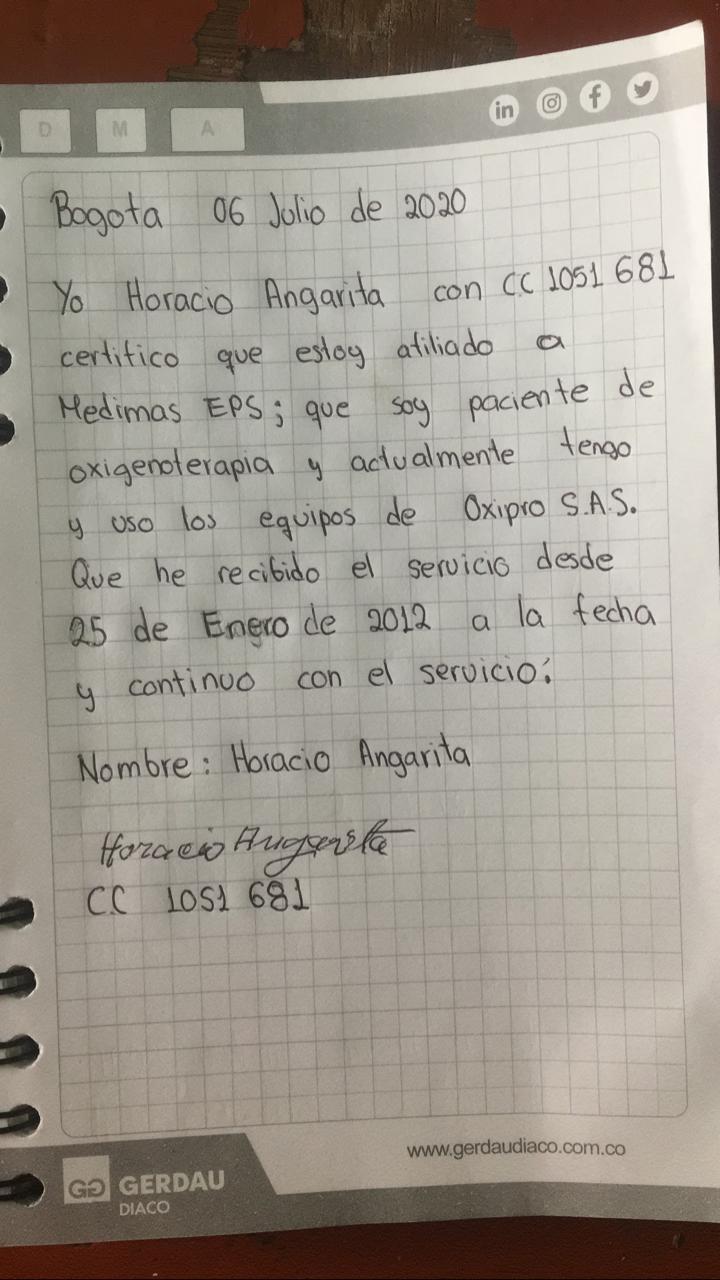 D M A
in f
Bogota 06 Julio de 2020
Yo Horacio Angarita con CC 1051 681
certifico que estoy afiliado a
Medimas EPS; que soy paciente de
oxigenoterapia y actualmente tengo
y uso los equipos de Oxipro S.A.S.
Que he recibido el servicio desde
25 de Enero de 2012 a la fecha
y continuo con el servicio.
Nombre: Horacio Angarita
Horacio Angarita
CC 1051 681
www.gerdaudiaco.com.co
GG GERDAU
DIACO